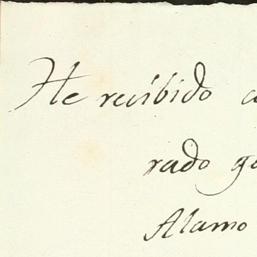 He recibido
rado
Alamo